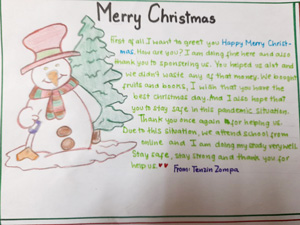 Merry Christmas
First of all I want to greet you Happy Merry Christ-
mas. How are you? I am doing fine here and also
thank you to sponsering us. You helped us alot and
we didn't waste any of that money. We bought
fruits and books, I wish that you have the
best christmas day. And I also hope that
you to stay safe in this pandemic situation.
Thank you once again for helping us.
Due to this situation, we attend school from
online and I am doing my study very well.
Stay safe, stay strong and thank you for
help us.
From: Tenzin Zompa